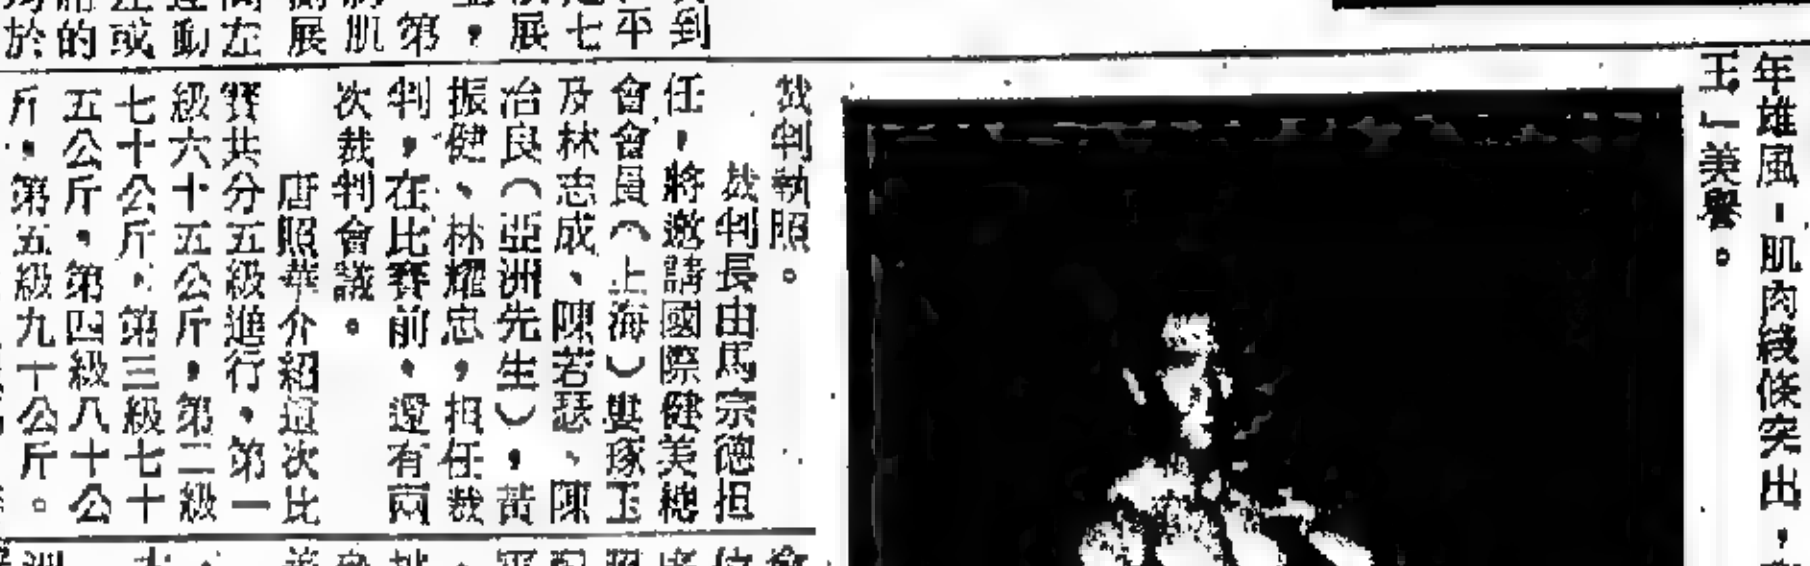 年雄風,肌肉綫條突出,
王」美譽。
到
平
七
展
,
第
肌
展
左
動
或
的
於
裁判執照。
裁判長由馬宗德担
任,將邀請國際健美總
會會員(上海)婁琢玉
及林志成、陳若瑟、陳
冶良(亞洲先生),黃
振健、林耀忠,担任裁
判,在比賽前,還有兩
次裁判會議。
唐照華介紹這次比
賽共分五級進行,第一
級六十五公斤,第二級
七十公斤,第三級七十
五公斤,第四級八十公
斤,第五級九十公斤。